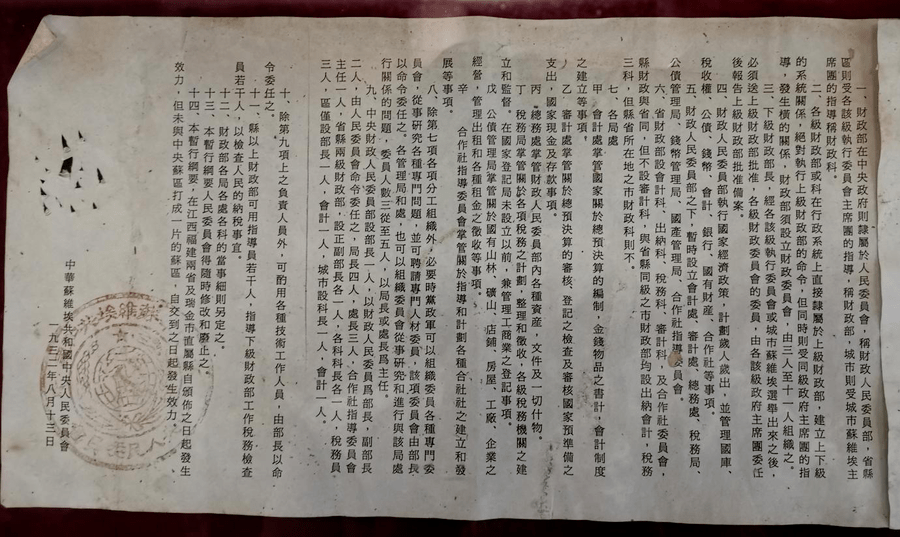 一、財政部在中央政府則隸屬於人民委員會，稱財政人民委員部，省縣
區則受各該級執行委員會主席團的指導，稱財政部，城市則受城市蘇維埃主
席團的指導稱財政科。
二、各級財政部或科在行政系統上直接隸屬於上級財政部，建立上下級
的系統關係，絕對執行上級財政部的命令，但同時則受同級政府主席團的指
導，發生橫的關係，財政部須設立財政委員會，由三人至十一人組織之。
三、下級財政部長，經各該級執行委員會或城市蘇維埃選舉出來之後，
必須送上級財政部批准，各級財政委員會的委員，由各該級政府主席團委任
後報告上級財政部批准備案。
四、財政人民委員部執行國家經濟政策，計劃歲入歲出，並管理國庫、
稅收權、公債、錢幣、會計、銀行、國有財産、合作社等事項。
五、財政人民委員部之下，暫時設立會計處、審計處、總務處、稅務局、
公債管理局、錢幣管理局、國產管理局、合作社指導委員會。
六、省財政部設會計科、出納科、稅務科、審計科，及合作社委員會，
縣財政與省同，但不設審計科，與省縣同級之市財政部均設出納會計，稅務
三科，但縣省所在地之市財政科則不
七、各局處
甲、會計處掌管國家關於總預決算的編制，金錢物品之書計，會計制度
之建立等事項。
乙、審計處掌管關於總預決算的審核、登記之檢查及審核國家預準備之
支出，國家現金及存款事項。
丙、總務處掌管財政人民委員部內各種資産，文件及一切什物。
丁、稅務局掌管關於各項稅務之計劃，整理和徵收，各級稅務機關之建
立和監督。在國家登記局未設立以前，兼管理工商業之登記事項。
戊、公債管理局掌管關於國有山林、礦山、店鋪、房屋、工廠、企業之
經營，管理出租和各種租金之徵收等事項。
辛、合作社指導委員會掌管關於指導和計劃各種合社社之建立和發
展等事項。
八、除第七項各項分工組織外，必要時黨政軍可以組織委員各種專門委
員會，從事研究各種專門問題，並可聘請專門人材委員，該項委員會由部長
以命令委任之。各管理局和處，也可以組織委員會從事研究和進行與該局處
行關係的問題，委員人數三從至五人，以局長或處長爲主任。
九、中央財政人民委員部設部長一人，以財政人民委員爲部長，副部長
二人，由人民委員會命令委任之，局長四人，處長三人，合作社指導委員會
主任一人，省縣兩級財政部，設正副部長各一人，各科科長各一人，稅務員
三人，區僅設部長一人，會計一人，城市設科長一人，會計一人。
十、除第九項上之負責人員外，可酌用各種技術工作人員，由部長以命
令委任之。
十一、縣以上財政部可用指導員若干人，指導下級財政部工作稅務檢查
員若干人，以檢查人民的納稅事宜。
十二、財政部各局處各科的當事細則另定之。
十三、本暫行綱要人民委員會得隨時修改和廢止之。
十四、本暫行綱要，在江西福建兩省及瑞金市直屬縣自頒佈之日起發生
效力，但未與中央蘇區打成一片的蘇區，自交到之日起發生效力。
中華蘇維埃共和國中央人民委員會
一九三二年八月十三日